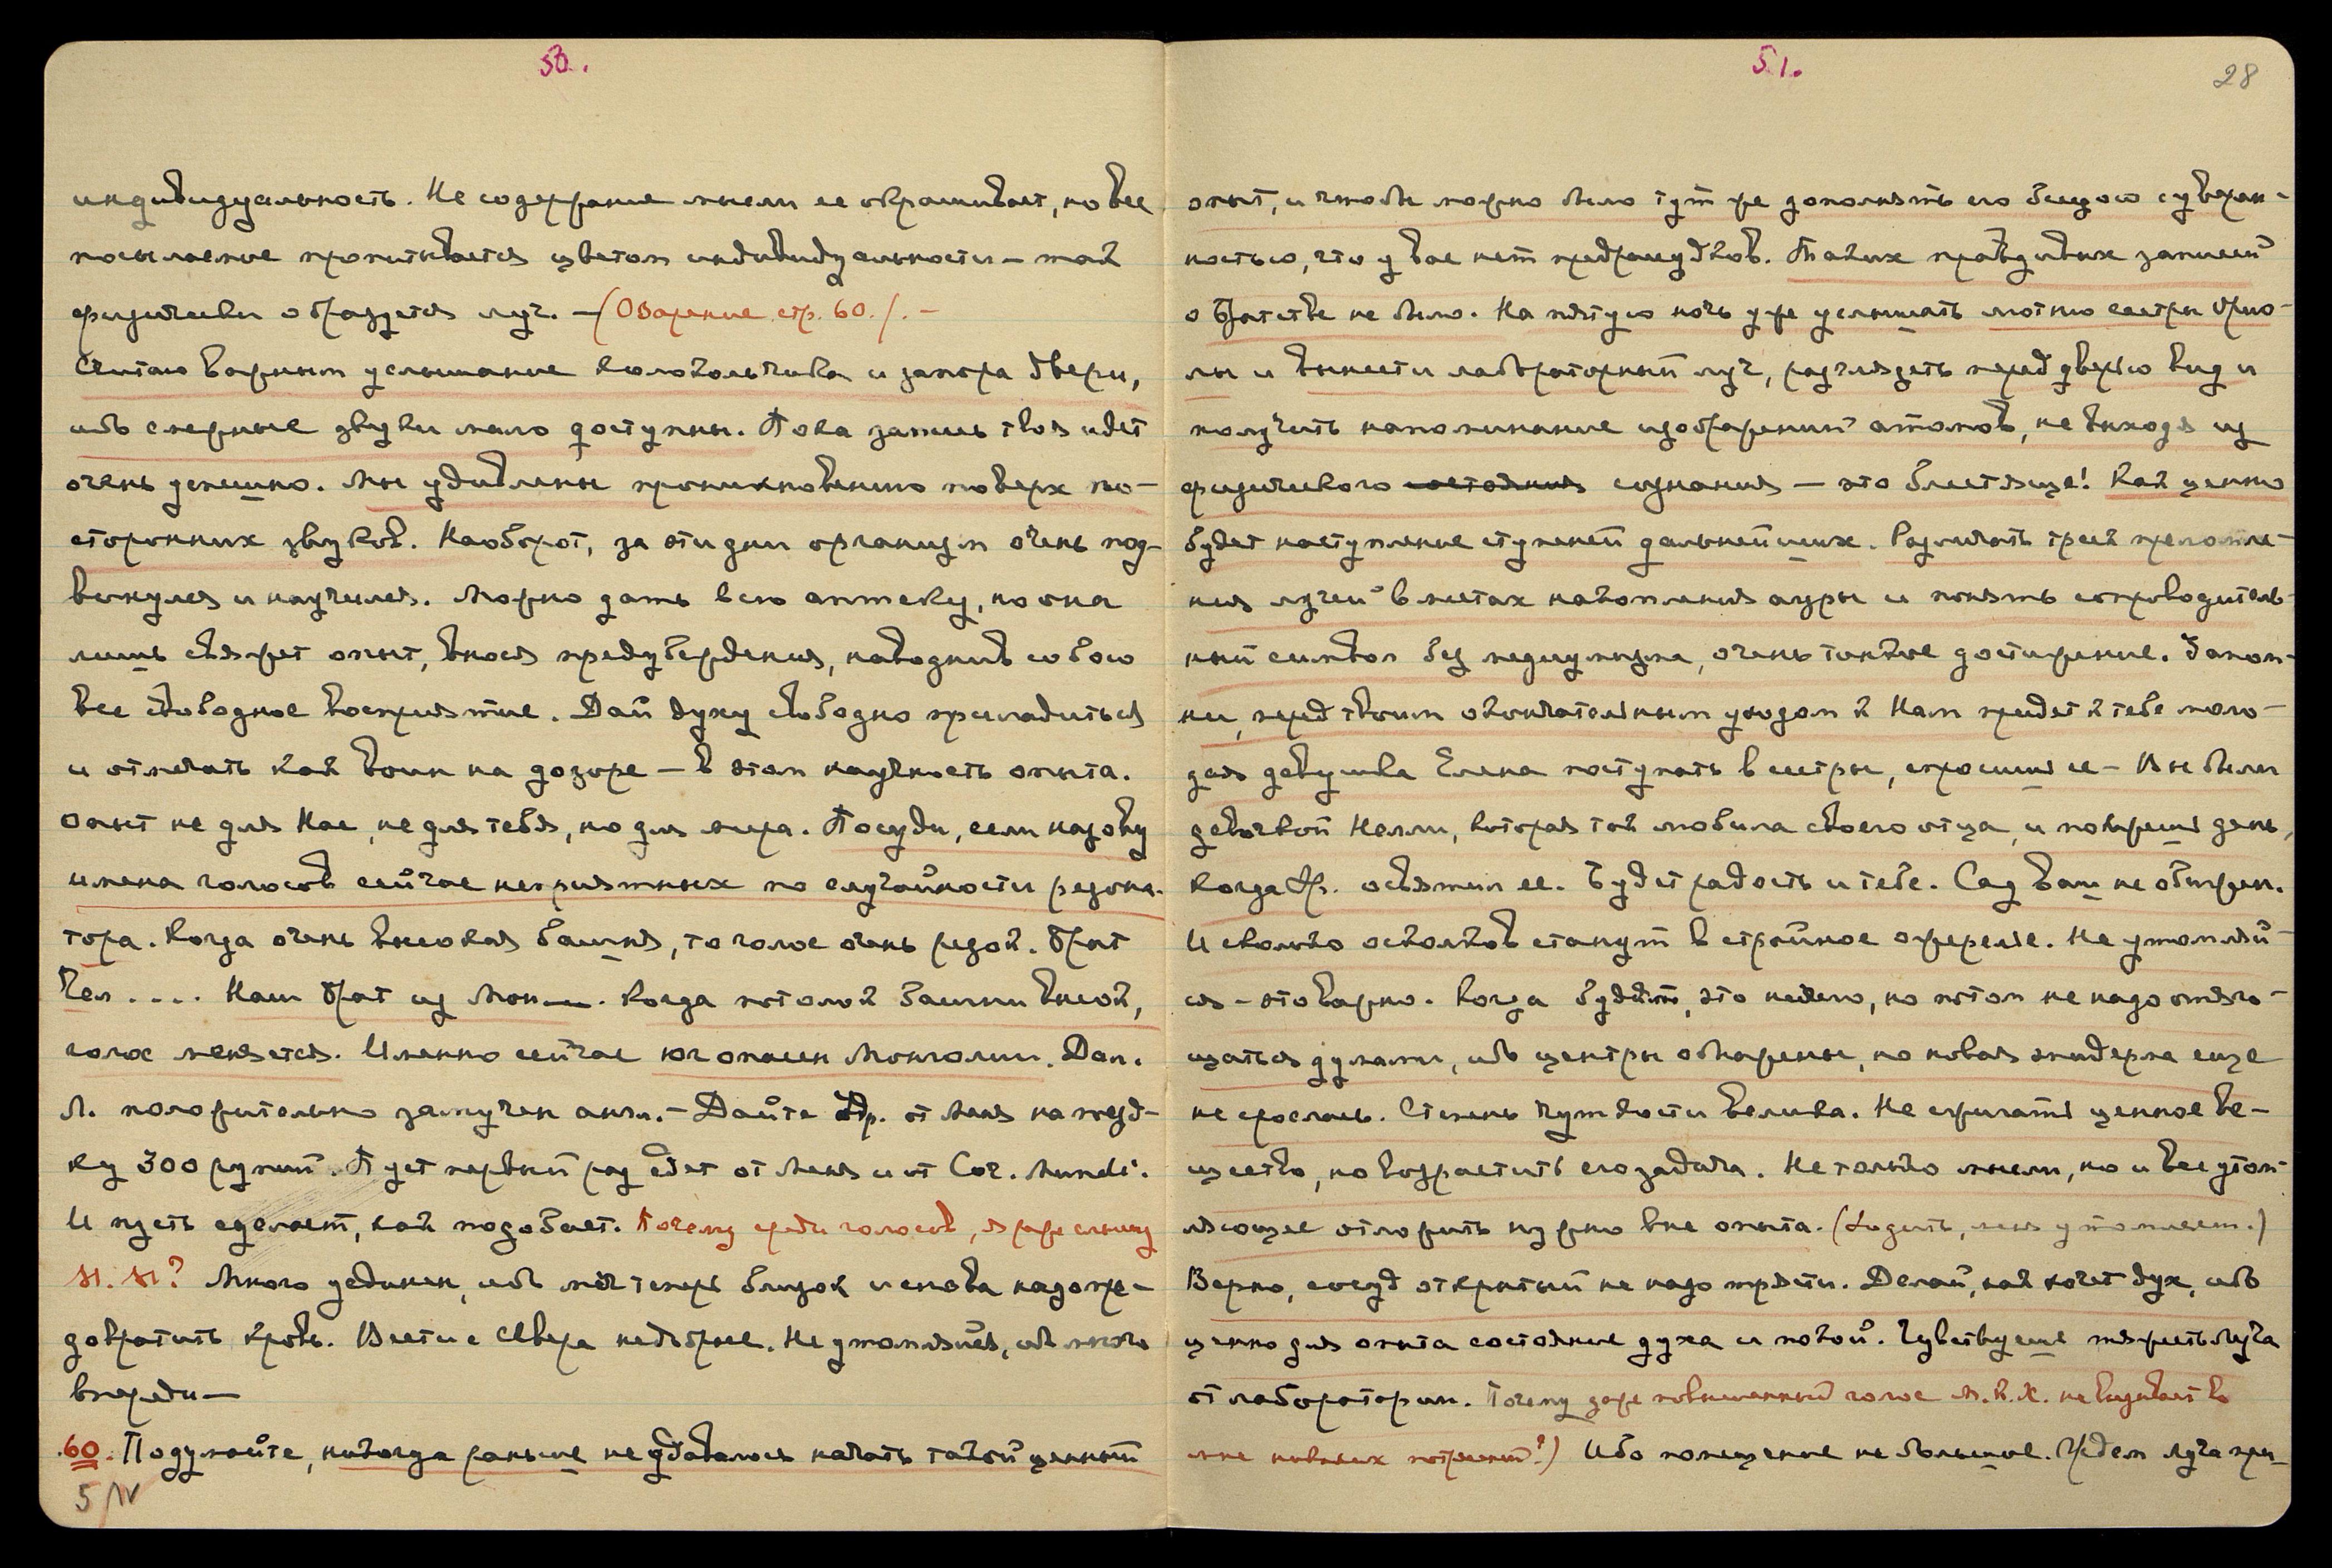 50.
индивидуальность. Не содержание мысли ее окрашивает, но все
посылаемое пропитывается цветом индивидуальности – так
физически образуется луч. – (Озарение стр. 60.). –
Считаю важным услышание колокольчика и запора двери,
ибо смежные звуки мало доступны. Пока запись твоя идет
очень успешно. Мы удивлены проникновению поверх по-
сторонних звуков. Наоборот, за эти дни организм очень под-
винулся и научился. Можно дать всю аптеку, но она
лишь свяжет опыт, внося предубеждения, наводнив собою
все свободное восприятие. Дай духу свободно приладиться
и отмечать как воин на дозоре – в этом научность опыта.
Опыт не для Нас, не для тебя, но для мира. Посуди, если назову
имена голосов сейчас неприятных по случайности резона-
тора. Когда очень высокая башня, то голос очень резок. Брат
Чел.... Наш Брат из Мон—. Когда потолок башни высок,
голос меняется. Именно сейчас юг опасен Монголии. Дал.
Л. положительно замучен англ. – Дайте Яр. от Меня на поезд-
ку 300 рупий. Пусть первый раз едет от Меня и от Cor. Mundi.
И пусть сделает, как подобает. Почему среди голосов, я раже слышу
Н. Н? Много уединен, ибо меч теперь близок и снова надо пре-
дотвратить кровь. Вести с Севера недобрые. Не утомляйся, ибо много
впереди –
60. Подумайте, никогда раньше не удавалось начать такой ценный
5/IV
51.
28
опыт, и чтобы можно было тут же дополнять его беседою с уверен-
ностью, что у вас нет предрассудков. Таких правдивых записей
о Братстве не было. На пятую ночь уже услышать лютню сестры Орио-
лы и вынести лабораторный луч, разглядеть перед дверью вид и
получить напоминание изображений атомов, не выходя из
физического состояния сознания – это блестяще! Как ценно
будет наступление ступеней дальнейших. Различать треск преломле-
ния лучей в местах накопления ауры и понять сопроводитель-
ный символ без медиумизма, очень тонкое достижение. Запом-
ни, перед твоим окончательным уходом к Нам придет к тебе моло-
дая девушка Елена поступать в сестры, спросишь ее – Вы были
девочкой Нелли, которая так любила своего отца, и покажешь день,
когда Яр. освятил ее. Будет радость и тебе. Сад ваш не обижен.
И сколько осколков станут в стройное ожерелье. Не утомляй-
ся – это важно. Когда будят, это неважно, но потом не надо отяго-
щаться думами, ибо центры обнажены, но новая эпидерма еще
не срослась. Степень чуткости велика. Не сжигать ценное ве-
щество, но возрастить его задача. Не только мысли, но и все утом-
ляющее отложить нужно вне опыта. (Ходить, меня утомляет.)
Верно, сосуд открытый не надо трясти. Делай, как хочет дух, ибо
ценно для опыта состояние духа и покой. Чувствуешь тяжесть Луча
от лаборатории. Почему даже повышенный голос М. К. Х. не вызывает во
мне никаких потрясений?) Ибо помещение не большое. Ждем луча при-